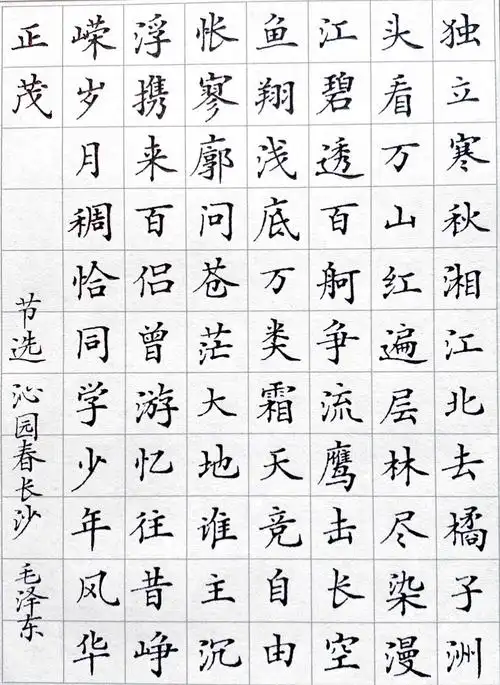 独立寒秋湘江北去橘子洲
头看万山红遍层林尽染漫
江碧透百舸争流鹰击长空
鱼翔浅底万类霜天竞自由
怅寥廓问苍茫大地谁主沉
浮携来百侣曾游忆往昔峥
嵘岁月稠恰同学少年风华
正茂
节选 沁园春长沙 毛泽东